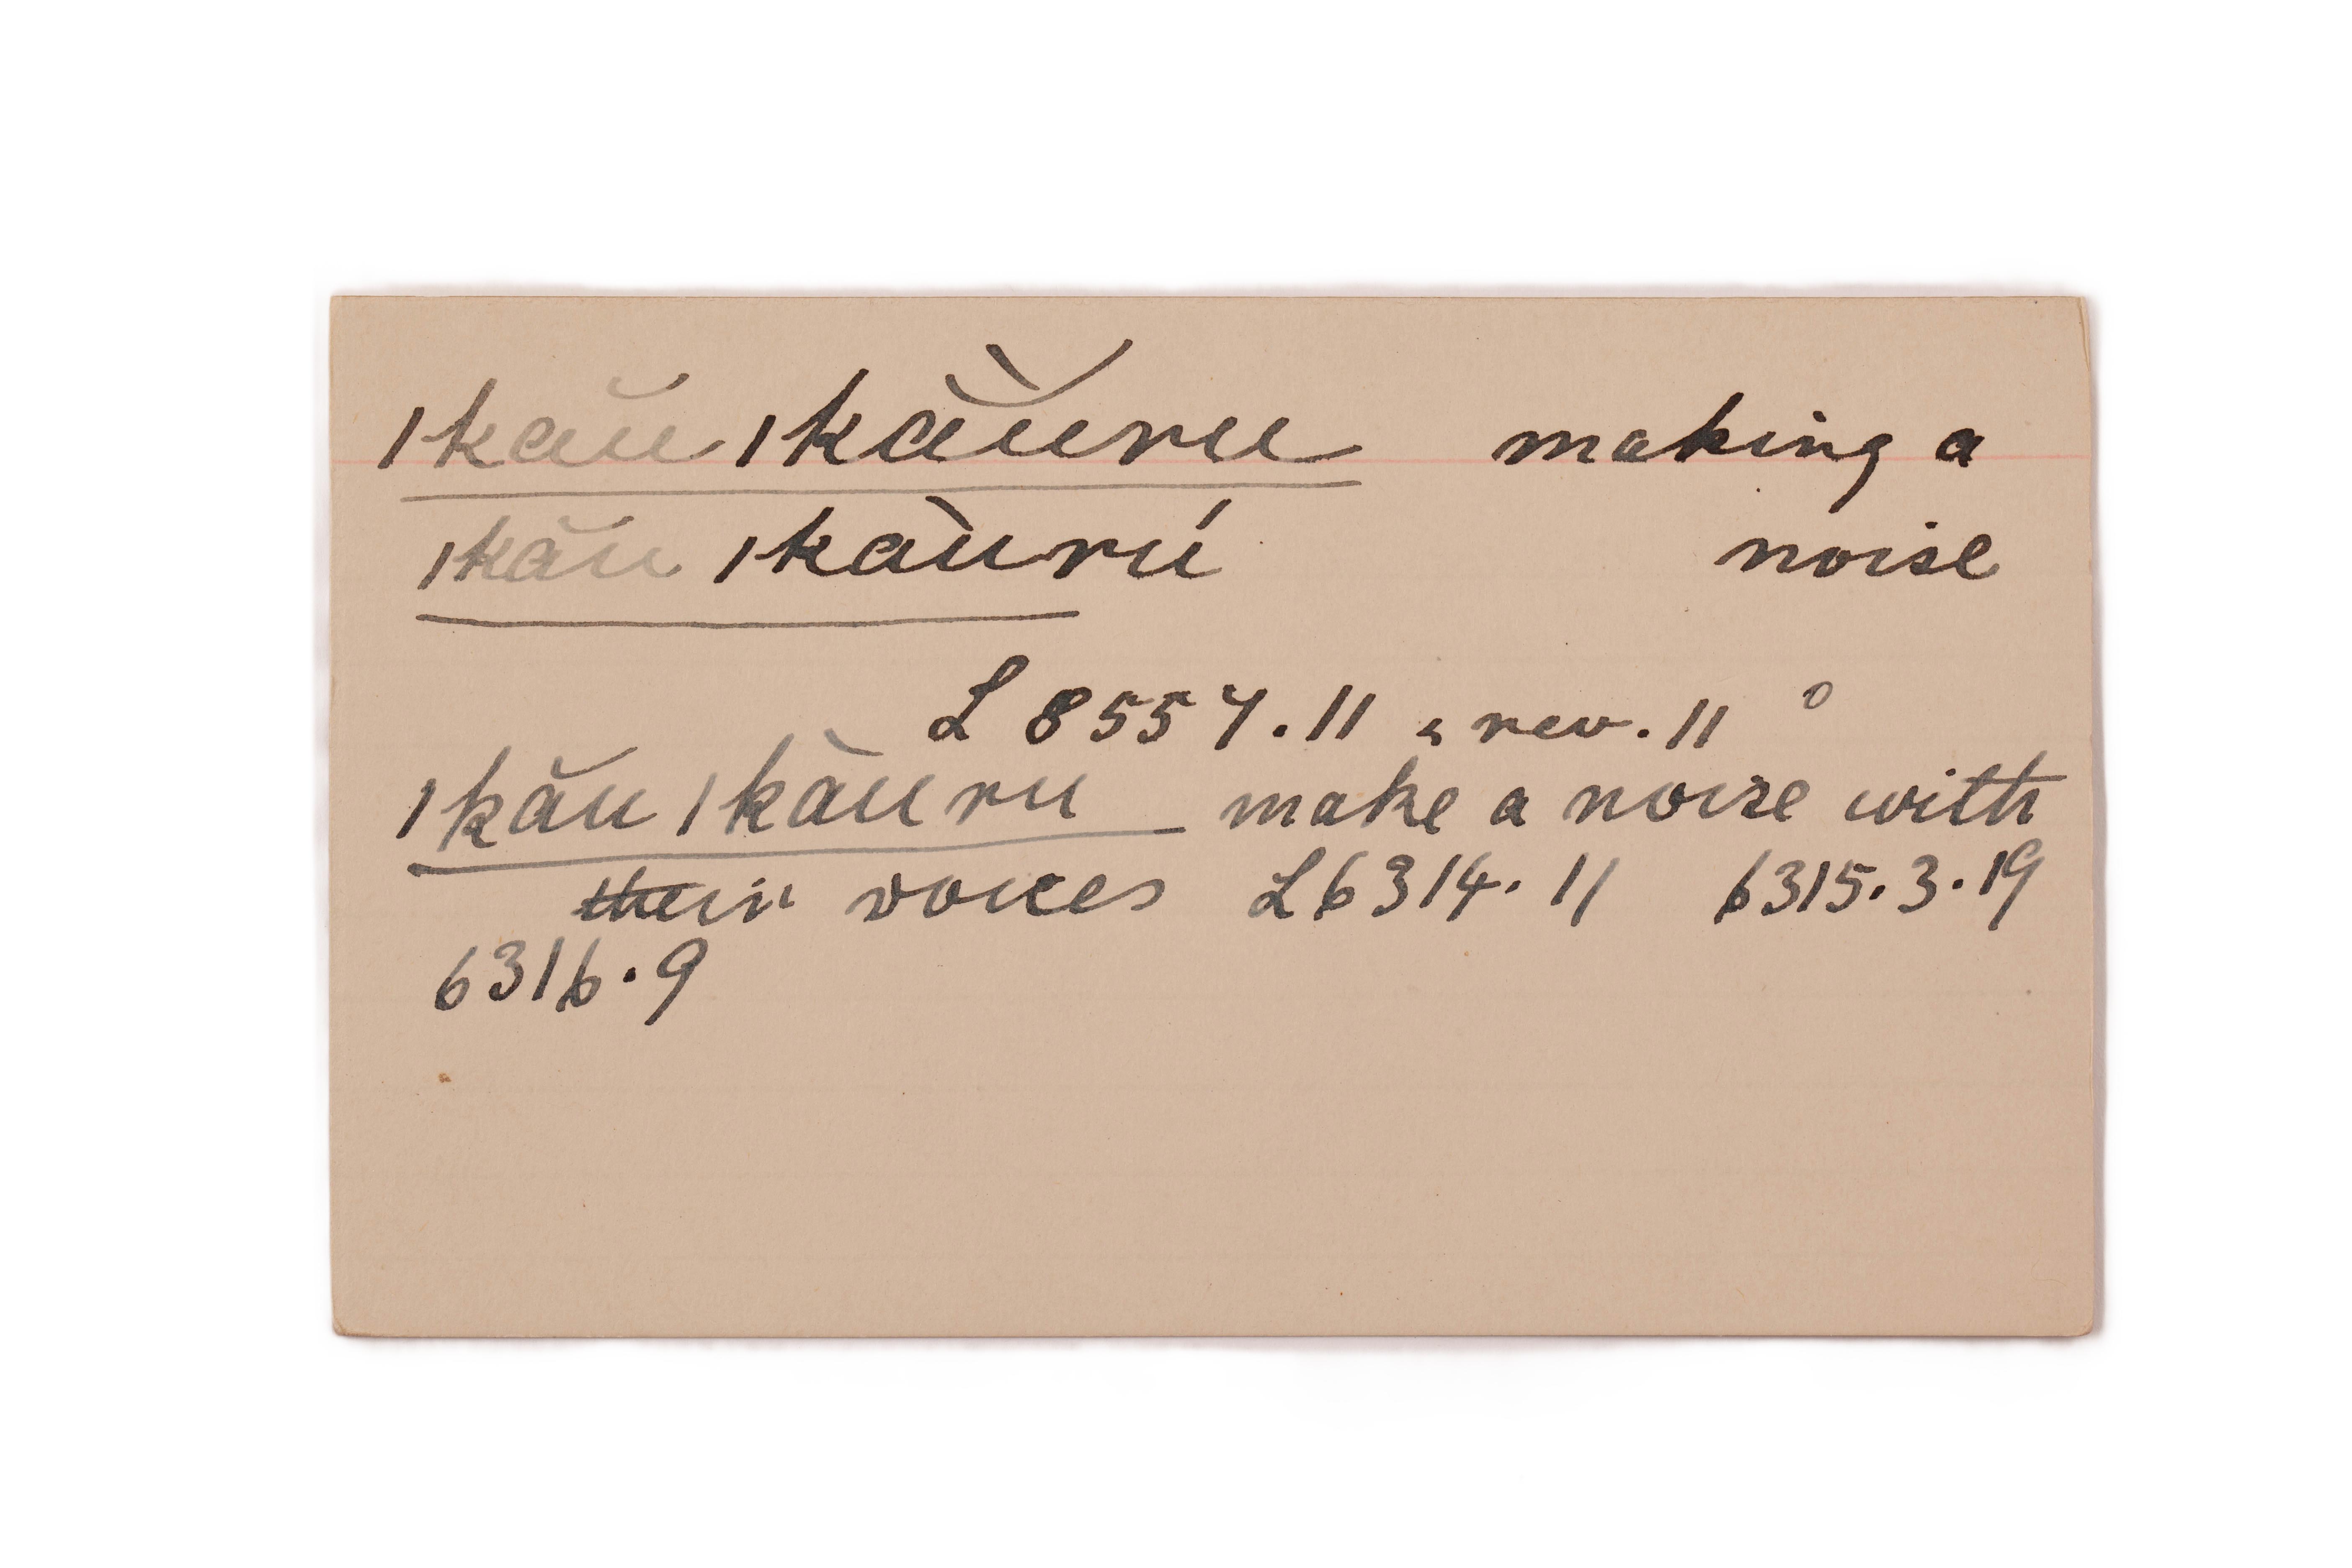 |kăŭ |kā̀ŭru making a
|kău |kaùrú noise
L 8557.11 & rev. 11 0
|kău |kàuru make a noise with
their voices L6314.11 6315.3.19
6316.9